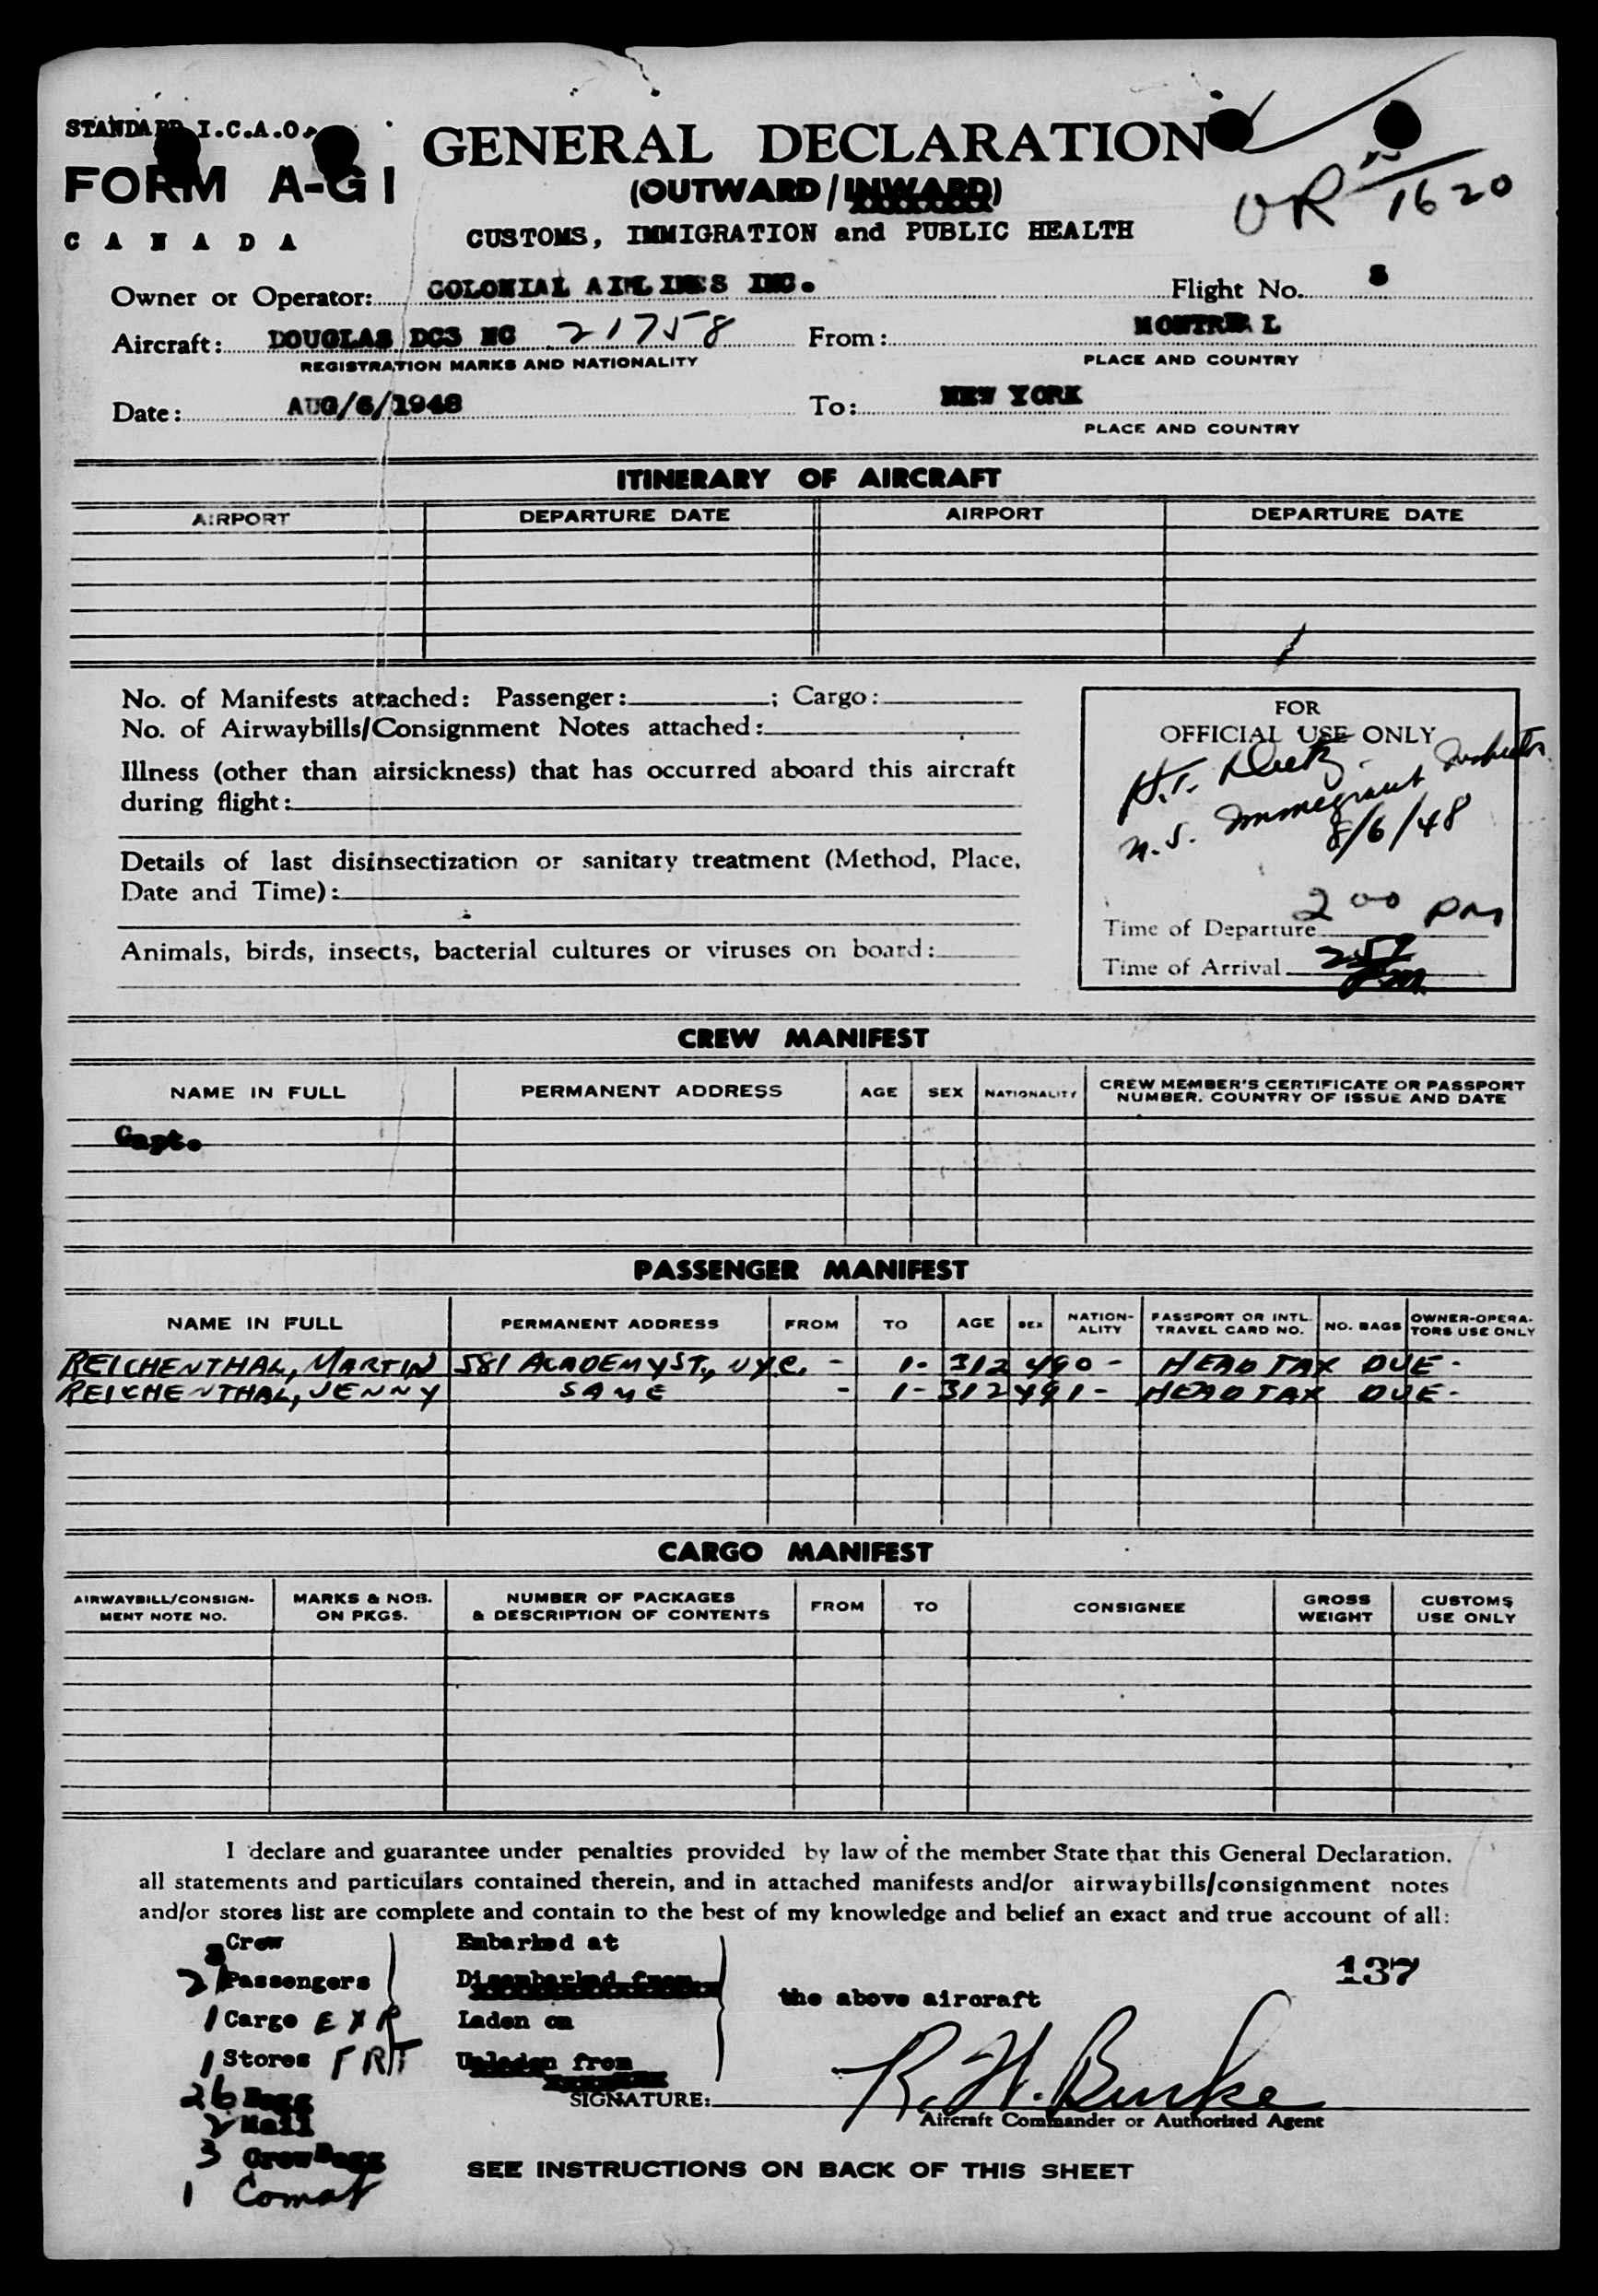 STANDARD I.C.A.O.
FORM A-G1
CANADA
GENERAL DECLARATION
(OUTWARD/INWARD)
CUSTOMS, IMMIGRATION and PUBLIC HEALTH
1620
Owner or Operator: COLONIAL AIRLINES INC. Flight No. 8
Aircraft: DOUGLAS DC3 NC 21758 From: MONTREAL
REGISTRATION MARKS AND NATIONALITY PLACE AND COUNTRY
Date: AUG/6/1948 To: NEW YORK
PLACE AND COUNTRY
ITINERARY OF AIRCRAFT
AIRPORT DEPARTURE DATE AIRPORT DEPARTURE DATE
No. of Manifests attached: Passenger: ; Cargo:
No. of Airwaybills/Consignment Notes attached:
Illness (other than airsickness) that has occurred aboard this aircraft
during flight:
Details of last disinsectization or sanitary treatment (Method, Place,
Date and Time):
Animals, birds, insects, bacterial cultures or viruses on board:
FOR
OFFICIAL USE ONLY
H.T.
Immigrant Inspector
8/6/48
Time of Departure 2 00 PM
Time of Arrival
CREW MANIFEST
NAME IN FULL PERMANENT ADDRESS AGE SEX NATIONALITY CREW MEMBER'S CERTIFICATE OR PASSPORT
NUMBER. COUNTRY OF ISSUE AND DATE
Capt.
PASSENGER MANIFEST
NAME IN FULL PERMANENT ADDRESS FROM TO AGE SEX NATION-ALITY PASSPORT OR INTL. TRAVEL CARD NO. NO. BAGS OWNER-OPERA-TORS USE ONLY
REICHENTHAL, MARTIN 581 ACADEMY ST., NYC. - 1-312490- HEAD TAX DUE-
REICHENTHAL, JENNY SAME - 1-312491- HEAD TAX DUE-
CARGO MANIFEST
AIRWAYBILL/CONSIGN-MENT NOTE NO. MARKS & NOS. ON PKGS. NUMBER OF PACKAGES & DESCRIPTION OF CONTENTS FROM TO CONSIGNEE GROSS WEIGHT CUSTOMS USE ONLY
I declare and guarantee under penalties provided by law of the member State that this General Declaration.
all statements and particulars contained therein, and in attached manifests and/or airwaybills/consignment notes
and/or stores list are complete and contain to the best of my knowledge and belief an exact and true account of all:
Crew Embarked at
21 Passengers Disembarked from
137
the above aircraft
1 Cargo EXP Laden on
1 Stores FRT Unladen from
26 Bags
2 Mail
3 Crew Bags
1 Comat
SIGNATURE: R. H. Burke
Aircraft Commander or Authorized Agent
SEE INSTRUCTIONS ON BACK OF THIS SHEET